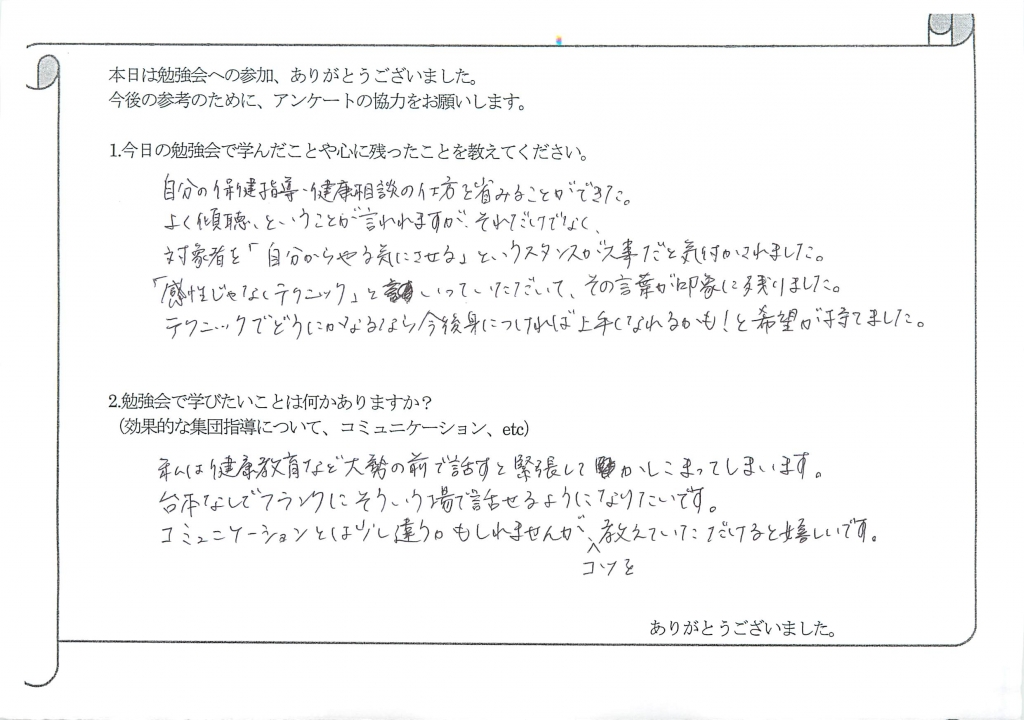 本日は勉強会への参加、ありがとうございました。
今後の参考のために、アンケートの協力をお願いします。
1.今日の勉強会で学んだことや心に残ったことを教えてください。
自分の保健指導・健康相談の仕方を省みることができた。
よく傾聴、ということが言われますが、それだけでなく、
対象者を「自分からやる気にさせる」というスタンスが大事だと気付かされました。
「感性じゃなくテクニック」といっていただいて、その言葉が印象に残りました。
テクニックでどうにかなるなら今後身につければ上手くなれるかも!と希望が持てました。
2.勉強会で学びたいことは何かありますか?
(効果的な集団指導について、コミュニケーション、etc)
私は健康教育など大勢の前で話すと緊張してかしこまってしまいます。
台本なしでフランクにそういう場で話せるようになりたいです。
コミュニケーションとは少し違うかもしれませんが、教えていただけると嬉しいです。
コツを
ありがとうございました。